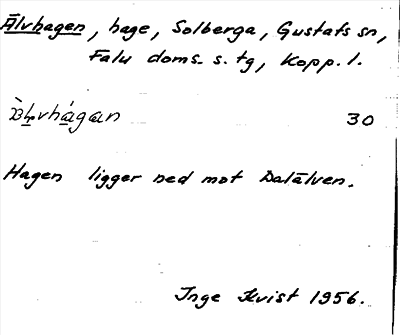 Älvhagen, hage, Solberga, Gustafs sn,
Falu doms. s. tg, Kopp. l.
30
Hagen ligger ned mot Dalälven.
Inge Kvist 1956.